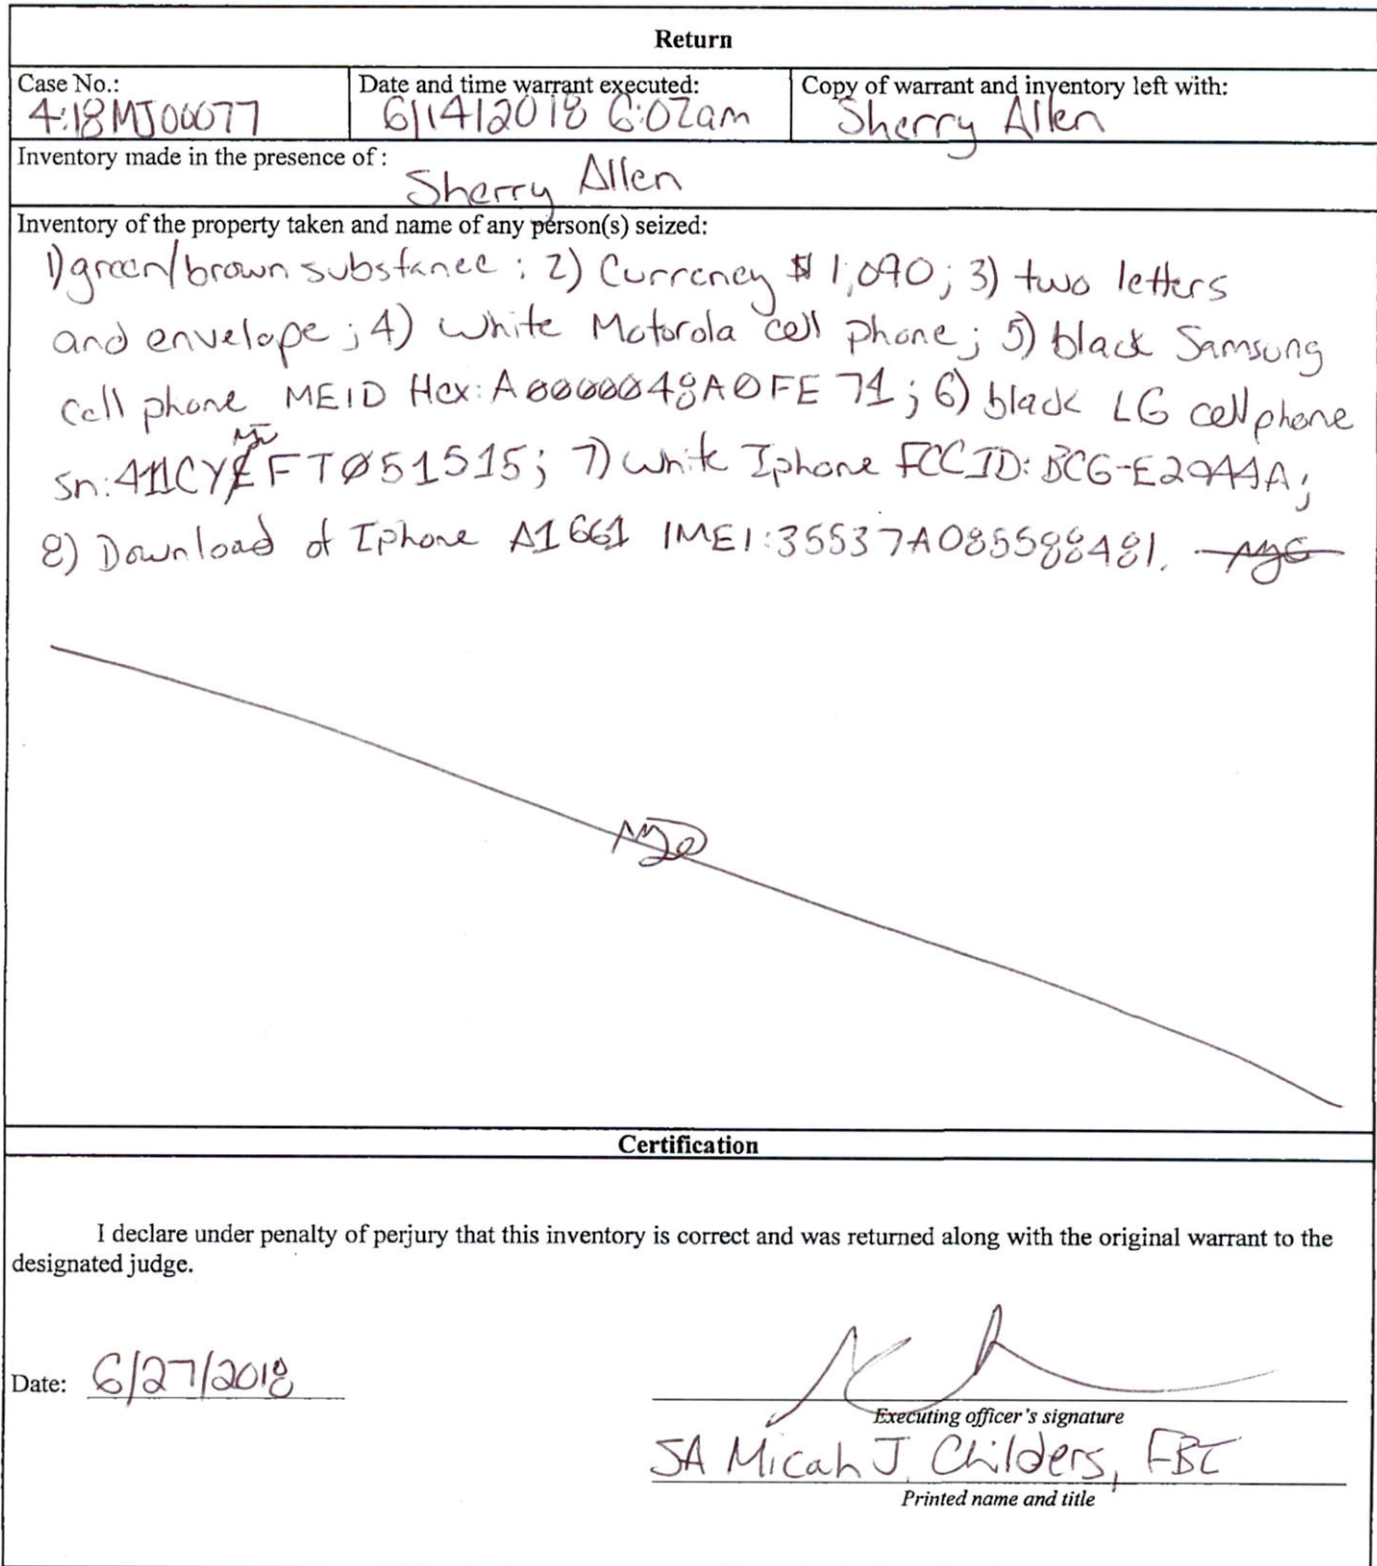 Return
Case No.:
4:18MJ00077
Date and time warrant executed:
6/14/2018 6:02am
Copy of warrant and inventory left with:
Sherry Allen
Inventory made in the presence of :
Sherry Allen
Inventory of the property taken and name of any person(s) seized:
1) green/brown substance; 2) Currency $1,090; 3) two letters
and envelope; 4) White Motorola cell phone; 5) black Samsung
cell phone MEID Hex: A0000048A0FE71; 6) black LG cell phone
sn: 411CY FT051515; 7) White Iphone FCC ID: BCG-E2944A;
8) Download of Iphone A1661 IMEI: 35537A085588481.
Certification
I declare under penalty of perjury that this inventory is correct and was returned along with the original warrant to the
designated judge.
Date: 6/27/2018
Executing officer's signature
SA Micah J. Childers, FBI
Printed name and title